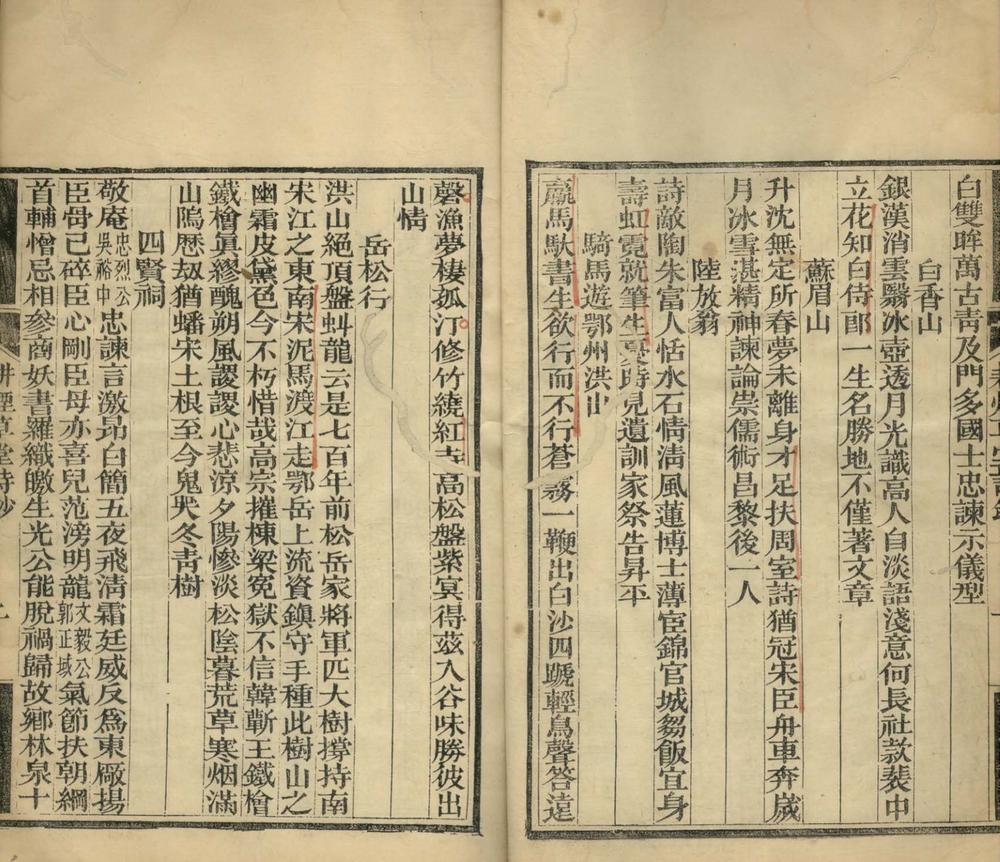 白雙眸萬古青及門多國士忠諫示儀型
白香山
銀漢消雲翳冰壺透月光識高人自淡語淺意何長社款裴中
立花知白侍郎一生名勝地不僅著文章
蘇眉山
升沈無定所春夢未離身才足扶周室詩猶冠宋臣舟車奔歲
月冰雪湛精神諫論祟儒術昌黎後一人
陸放翁
詩敵陶朱富人恬水石情清風蓮博士薄宦錦官城芻飯宜身
壽虹霓就筆生憂時見遺訓家祭告昇平
騎馬遊鄂州洪山
羸馬馱書生欲行而不行蒼霧一鞭出白沙四蹏輕鳥聲答遠
磬漁夢棲孤汀修竹繞紅寺高松盤紫冥得茲入谷味勝彼出
山情
岳松行
洪山絕頂盤虯龍云是七百年前松岳家將軍匹大樹撐持南
宋江之東南宋泥馬渡江走鄂岳上流資鎮守手種此樹山之
幽霜皮黛色今不朽惜哉高宗摧棟梁冤獄不信韓蘄王鐵檜
鐵檜眞繆醜朔風謖謖心悲涼夕陽慘淡松陰暮荒草寒烟滿
山隖歷劫猶蟠宋土根至今鬼哭冬青樹
四賢祠
敬庵忠烈公吳裕中忠諫言激昂白簡五夜飛清霜廷威反爲東厰揚
臣骨已碎臣心剛臣母亦喜兒范滂明龍文毅公郭正域氣節扶朝綱
首輔憎忌相參商妖書羅織皦生光公能脫禍歸故鄉林泉十
耕煙草堂詩鈔